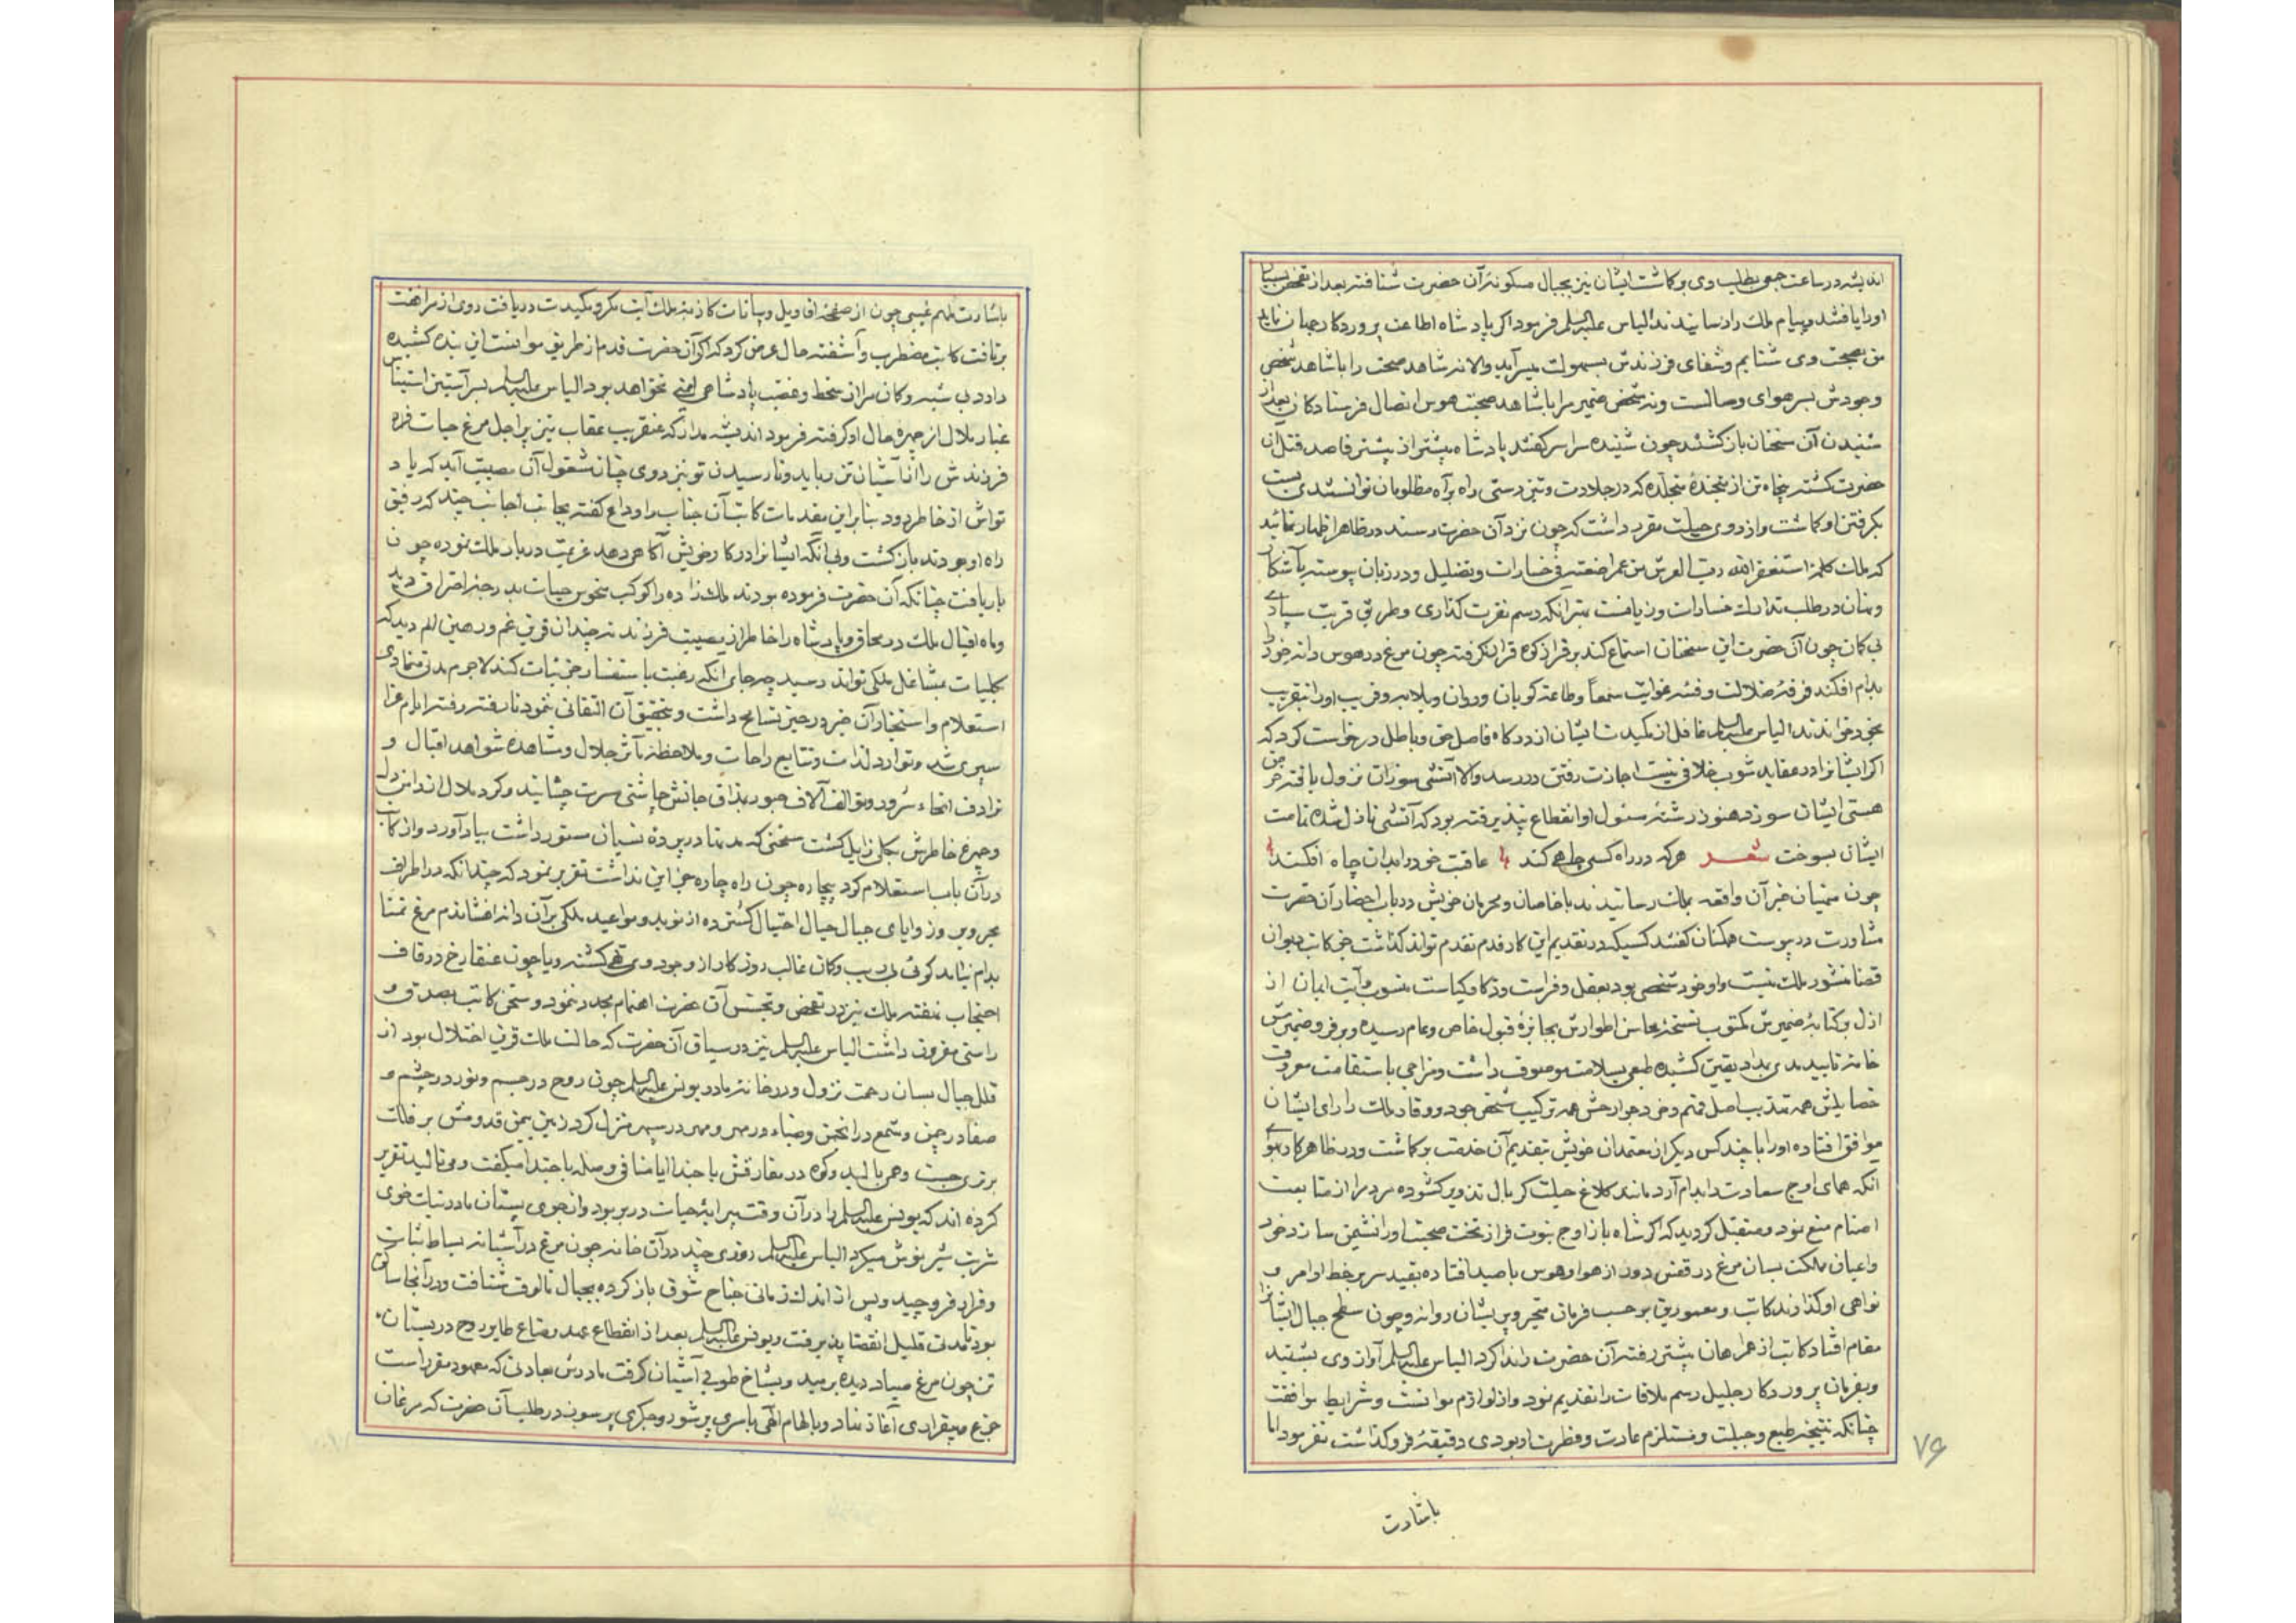 اندیشه در ساعت جمعی بطلب وی برکاشت ایشان نیز بجبال مسکونهٔ آن حضرت شتافته بعد از تفحص بسیار
اورا یافتند و پیام ملک را رسانیدند الیاس علیه السلم فرمود اکر پادشاه اطاعت پروردکار جهان نماید
من بصحبت وی شتابم و شفای فرزندش بسهولت میسر آید والا نه شاهد صحت را با شاهد شخص
وجودش بسر هوای وصالست و نه شخص ضمیر مرا با شاهد صحبتش هوس اتصال فرستادکان بعد از
شنیدن آن سخنان بازکشتند چون شنیده سراسر کفتند پادشاه بیشتر از پیشتر قاصد قتل آن
حضرت کشته پنجاه تن از که در جلادت و تیزدستی راه بر آه مظلومان توانستندی بست
بکرفتن او کماشت و از روی حیلت مقرر داشت که چون نزد آن حضرت رسند در ظاهر اظهار نمائید
که ملک کلمه استغفر الله رب العرش من عمر اضعته فی خسارات و تضلیل ورد زبان پیوسته بآشکار
و نهان در طلب تدارک خسارات وزیانست بهتر آنکه رسم نفرت کذاری و طریق قربت سپاری
بی کمان چون آن حضرت این سخنان استماع کند بر قرار کوه قرار نکرفته چون مرغ در هوس دانه خود را
بدام افکند فرقهٔ ضلالت و فئهٔ غوایت سمعاً و طاعة کویان روان و بلابه و فریب اورا بتقریب
بخود خواندند الیاس علیه السلم غافل از مکیدت ایشان از درکاه فاصل حق و باطل درخواست کرد که
اکر ایشانرا در عقاید شوب خلافی نیست اجازت رفتن در رسد والا آتشی سوزان نزول یافته خرمن
هستی ایشان سوزد هنوز رشتهٔ مسئول او انقطاع نپذیرفته بود که آتشی نازل شده تمامت
ایشان بسوخت شعر هرکه در راه کسی چاهی کند عاقبت خود را بدان چاه افکند
چون منهیان خبر آن واقعه بملک رسانیدند با خاصان و محرمان خویش در باب احضار آن حضرت
مشاورت در پیوست همکنان کفتند کسیکه در تقدیم این کار قدم تقدم تواند کذاشت جز کاتب دیوان
قضا منشور ملک نیست و او خود شخصی بود بعقل و فراست و ذکا و کیاست منسوب و آیت ایمان از
ازل و کتابهٔ ضمیرش مکتوب نسخهٔ محاسن اطوارش بجایزهٔ قبول خاص و عام رسیده و بر فرد ضمیرش
خامه تایید مدی بمداد یقین کشیده طبعی بسلامت موصوف داشت و مزاجی باستقامت معروف
خصایلش همه تهذیب اصل فهم و خرد جوارحش همه ترکیب شخص جود و وقار ملک را رای ایشان
موافق افتاده اورا با چند کس دیکر از معتمدان خویش بتقدیم آن خدمت برکماشت و در ظاهر کار بهوای
آنکه همای اوج سعادت را بدام آرد مانند کلاغ حیلت کر بال تذویر کشوده مردم را از متابعت
اصنام منع نمود و متقبل کردید که اکر شاه باز اوج نبوت فراز تخت صحبت اورا نشیمن سازد خود
و اعیان مملکت بسان مرغ در قفس دور از هوا و هوس با صید افتاده بقید سر بر خط اوامر و
نواهی او کذارند کاتب و معمورین بر حسب فرمان متحیر و پریشان روانه و چون سطح جبال ایشانرا
مقام افتاد کاتب از همراهان پیشتر رفته آن حضرت را ندا کرد الیاس علیه السلم آواز وی بشنید
و بفرمان پروردکار جلیل رسم ملاقات را تقدیم نمود و از لوازم موانست و شرایط موافقت
چنانکه نتیجهٔ طبع و جبلت و مستلزم عادت و فطرت او بودی دقیقهٔ فروکذاشت نفرمود اما
۷۶
باشارت
باشارت ملهم غیبی چون از صفحهٔ اقاویل و بیانات کاذبهٔ ملک آیت مکر و مکیدت دریافت روی از مرافقت
برتافت کاتب مضطرب و آشفته حال عرض کرد که اکر آن حضرت قدم از طریق موانست این بنده کشیده
دارد بی شبه و کمان مرا از سخط و غضب پادشاه ایمنی نخواهد بود الیاس علیه السلم بسر آستین استیناس
غبار ملال از چهرهٔ حال او کرفته فرمود اندیشه مدار که عنقریب عقاب تیز پر اجل مرغ حیات قره
فرزندش را از آشیان تن رباید و تا رسیدن تو نیز روی چنان مشغول آن مصیبت آید که یاد
تواش از خاطر رود بنابراین مقدمات کاتب آن جناب را وداع کفته بجانب اجانب چند که رفیق
راه او بودند بازکشت و بی آنکه ایشانرا در کار خویش آکاهی دهد عزیمت دربار ملک نموده چون
بار یافت چنانکه آن حضرت فرموده بودند ملک زاده را کوکب منحوس حیات بدرجهٔ احتراق دید
و ماه اقبال ملک در محاق و پادشاه را خاطر از مصیبت فرزند نه چندان قرین غم و رهین الم دید که
بکلیات مشاغل ملکی تواند رسید چه جای آنکه رغبت باستفسار جزئیات کند لاجرم مدتی متمادی
استعلام و استخبار آن خبر در حیز تسامح داشت و بتحقیق آن التفاتی ننمود تا رفته رفته ایام عزا
سپری شد و توارد لذات و تتابع راحات و ملاحظهٔ مآثر جلال و مشاهدهٔ شواهد اقبال و
ترادف انحاء سرور و توالف آلاف حبور بمذاق جانش چاشنی مسرت چشانید و کرد ملال اندامن دل
و چهره خاطرش بکلی زایل کشت سخنی که مدتها در پردهٔ نسیان مستور داشت بیاد آورد و از کاتب
در آن باب استعلام کرد بیچاره چون راه چاره جز این نداشت تقریر نمود که چندانکه در اطراف
بحر و بر و زوایای جبال حبال احتیال کسترده از نوید و مواعید ملکی بر آن دانه افشاندم مرغ تمنا
بدام نیامد کوئی بی ریب و کمان غالب روزکار از وجود وی تهی کشته و یا چون عنقا رخ در قاف
احتجاب نهفته ملک نیز در تفحص و تجسس آن حضرت اهتمام مجدد ننمود و سخن کاتب بصدق و
راستی مقرون داشت الیاس علیه السلم نیز در سیاق آن حضرت که حالت ملک قرین اختلال بود از
قلل جبال بسان رحمت نزول و در خانه مادر یونس علیه السلم چون روح در جسم و نور در چشم و
صفا در چمن و شمع در انجمن و ضیاء در مهر و مهر در سپهر منزل کرد زمین بیمن قدومش بر فلک
برتری جست و همی بالید و کوه در مفارقتش یا حبذا ایامنا فی وصله یا حبذا میکفت و می نالید تقریر
کرده اند که یونس علیه السلم را در آن وقت پیرایهٔ حیات در بر بود و از جوی پستان مادر نبات خوی
شربت شیر نوش میکرد الیاس علیه السلم روزی چند در آن خانه چون مرغ در آشیانه بساط ثبات
و قرار فروچید و پس از اندک زمانی جناح شوق باز کرده بجبال مالوف شتافت و در آنجا ساکن
بود تا مدتی قلیل انقضا پذیرفت و یونس علیه السلم بعد از انقطاع عهد رضاع طایر روح در بستان
تن چون مرغ صیاد دیده برمید و بشاخ طوبی آشیان کرفت مادرش بعادتی که معهود و مقرر است
جزع و بیقراری آغاز نهاد و بالهام آلهی با سری پر شور و جکری پر سوز در طلب آن حضرت که مرغان